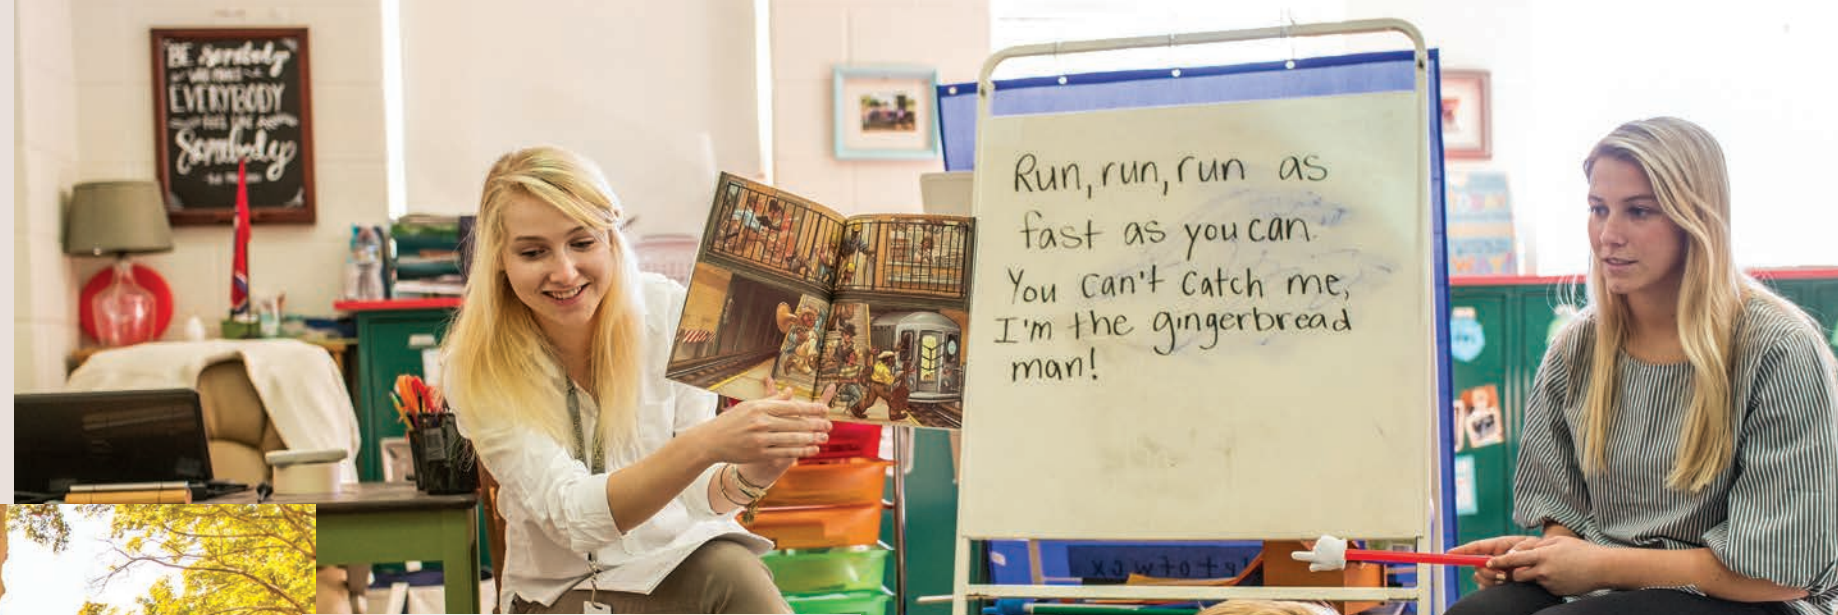 BE Somebody
WHO MAKES
EVERYBODY
FEEL LIKE A
Somebody
Run, run, run as
fast as you can.
You can't catch me,
I'm the gingerbread
man!